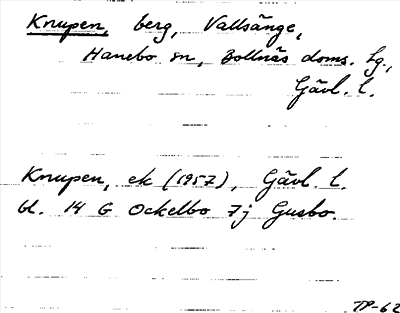 Knupen, berg, Vallsänge,
Hanebo sn, Bollnäs doms. lg.,
Gävl. l.
Knupen, ek (1957), Gävl. l.
bl. 14 G Ockelbo 7j Gusbo.
TP-62